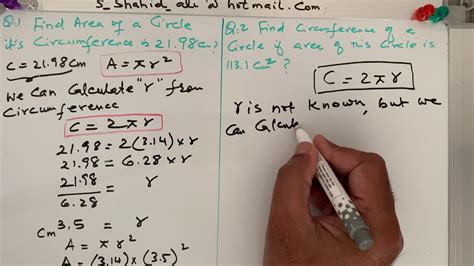 S_Shahid_ali @ hotmail.com
Q.1 Find Area of a Circle
it's Circumference is 21.98cm?
C = 21.98cm A = πr²
We can Calculate "r" from
Circumference
C = 2πr
21.98 = 2(3.14)×r
21.98 = 6.28×r
21.98 = r
6.28
cm 3.5 = r
A = πr²
A = (3.14)×(3.5)²
Q.2 Find Circumference of a
Circle if area of this Circle is
113.1 cm²?
C = 2πr
r is not known, but we
Can Calcula